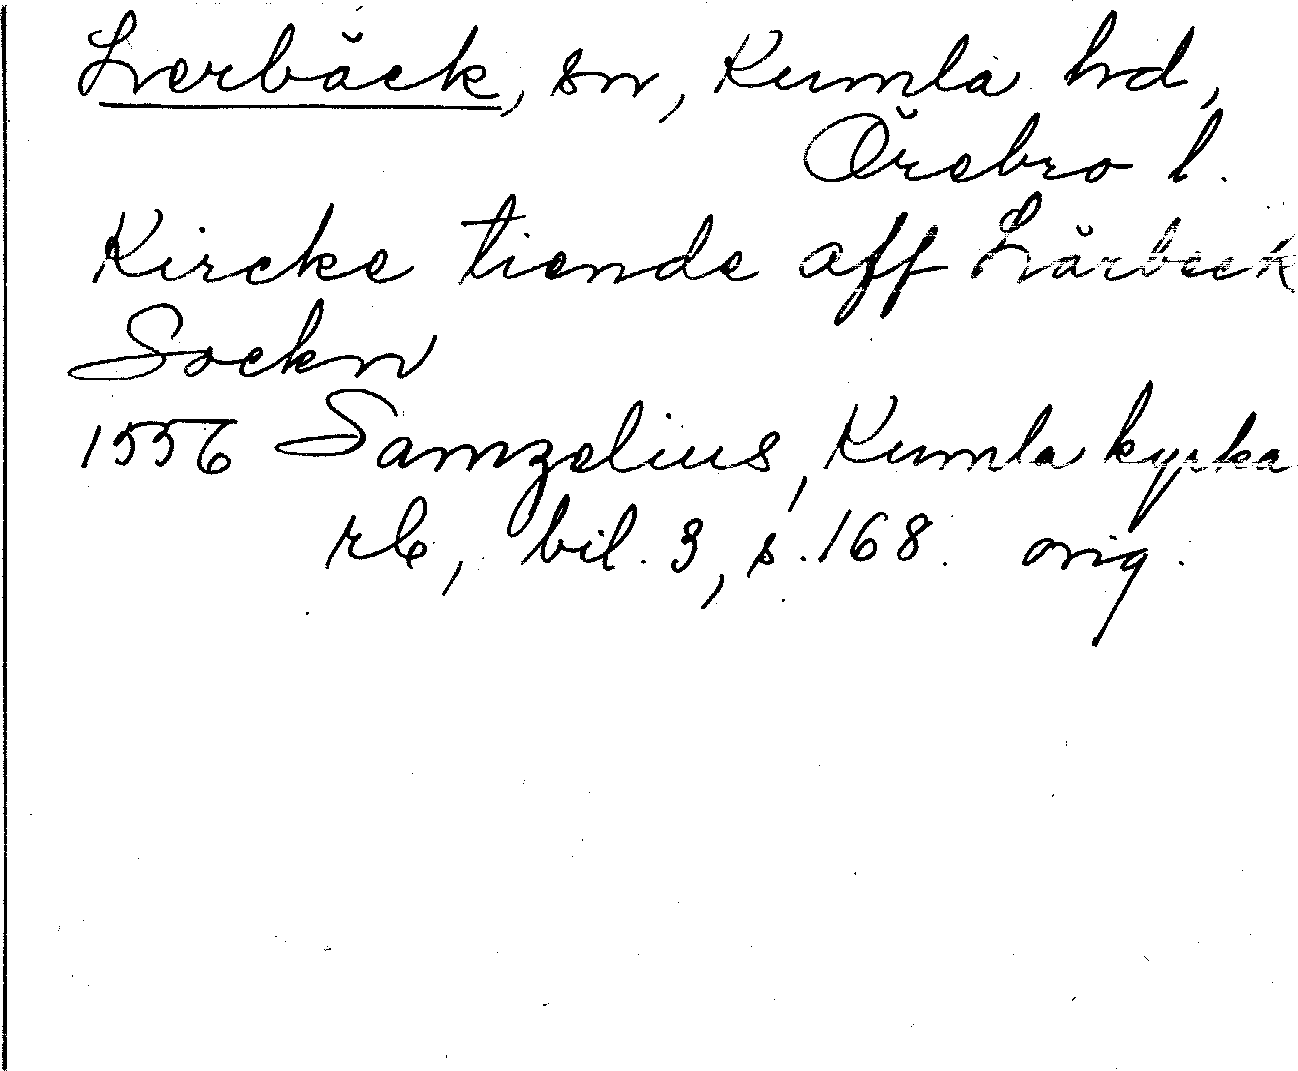 Lerbäck, sn, Kumla hd,
Örebro l.
Kircke tiende aff Lärbeck
Sockn
1556 Samzelius, Kumla kyrka
rk, bil. 3, s. 168. orig.